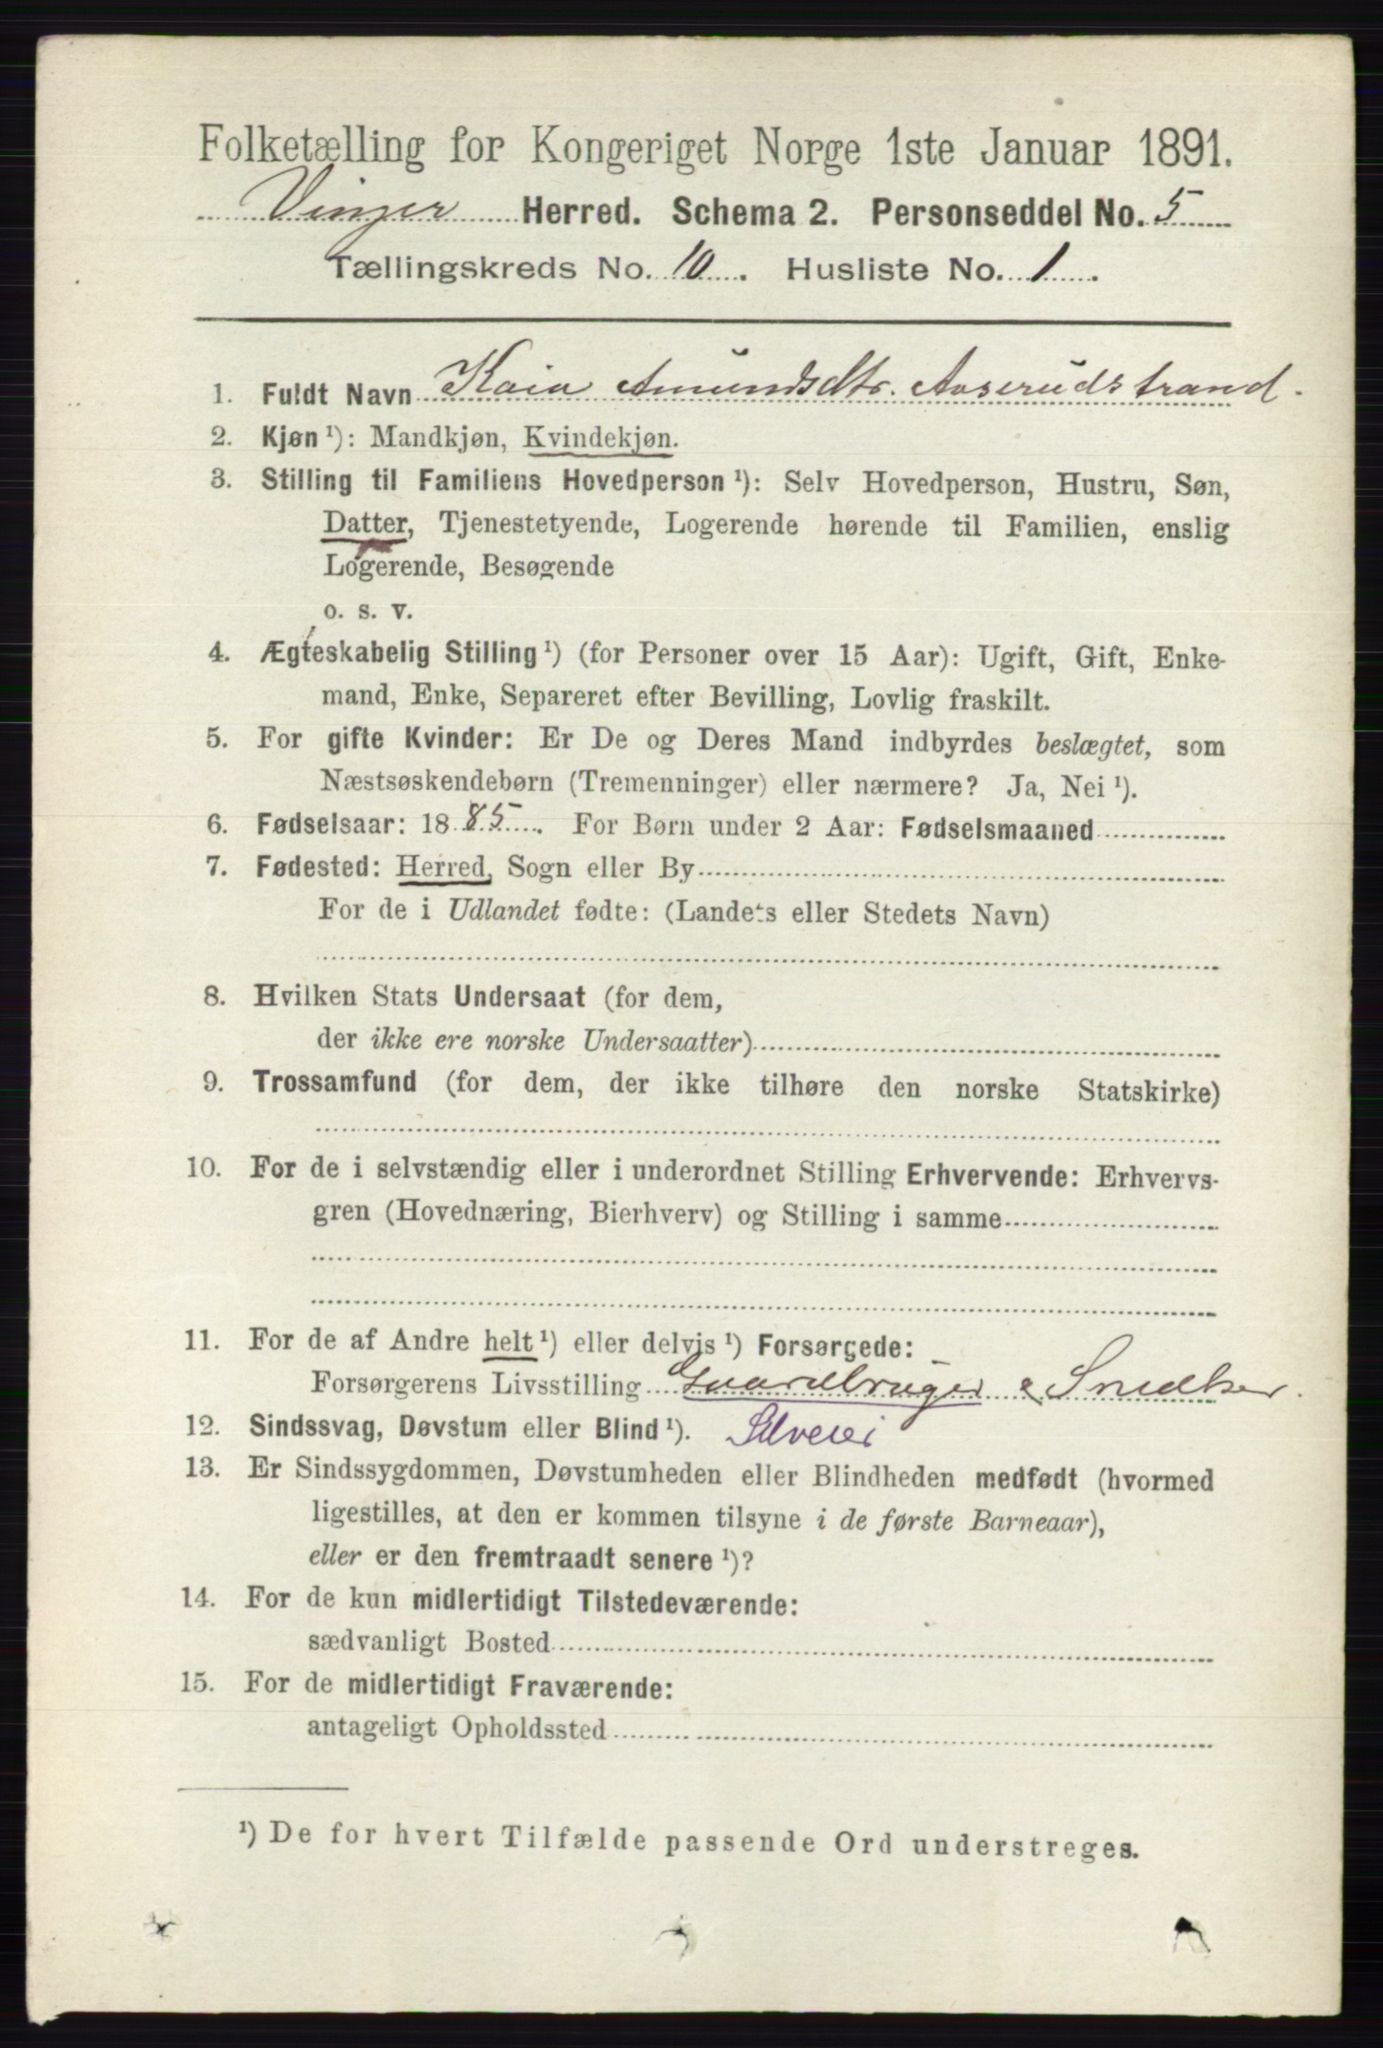 Folketælling for Kongeriget Norge 1ste Januar 1891.
Vinger Herred. Schema 2. Personseddel No. 5
Tællingskreds No. 10. Husliste No. 1.
1. Fuldt Navn Kaia Amundsdtr. Aaserudstrand.
2. Kjøn ¹): Mandkjøn, Kvindekjøn.
3. Stilling til Familiens Hovedperson ¹): Selv Hovedperson, Hustru, Søn,
Datter, Tjenestetyende, Logerende hørende til Familien, enslig
Logerende, Besøgende
o. s. v.
4. Ægteskabelig Stilling ¹) (for Personer over 15 Aar): Ugift, Gift, Enke-
mand, Enke, Separeret efter Bevilling, Lovlig fraskilt.
5. For gifte Kvinder: Er De og Deres Mand indbyrdes beslægtet, som
Næstsøskendebørn (Tremenninger) eller nærmere? Ja, Nei ¹).
6. Fødselsaar: 1885. For Børn under 2 Aar: Fødselsmaaned
7. Fødested: Herred, Sogn eller By
For de i Udlandet fødte: (Landets eller Stedets Navn)
8. Hvilken Stats Undersaat (for dem,
der ikke ere norske Undersaatter)
9. Trossamfund (for dem, der ikke tilhøre den norske Statskirke)
10. For de i selvstændig eller i underordnet Stilling Erhvervende: Erhvervs-
gren (Hovednæring, Bierhverv) og Stilling i samme
11. For de af Andre helt ¹) eller delvis ¹) Forsørgede:
Forsørgerens Livsstilling Gaardbruger & Snedker.
12. Sindssvag, Døvstum eller Blind ¹).
13. Er Sindssygdommen, Døvstumheden eller Blindheden medfødt (hvormed
ligestilles, at den er kommen tilsyne i de første Barneaar),
eller er den fremtraadt senere ¹)?
14. For de kun midlertidigt Tilstedeværende:
sædvanligt Bosted
15. For de midlertidigt Fraværende:
antageligt Opholdssted
¹) De for hvert Tilfælde passende Ord understreges.